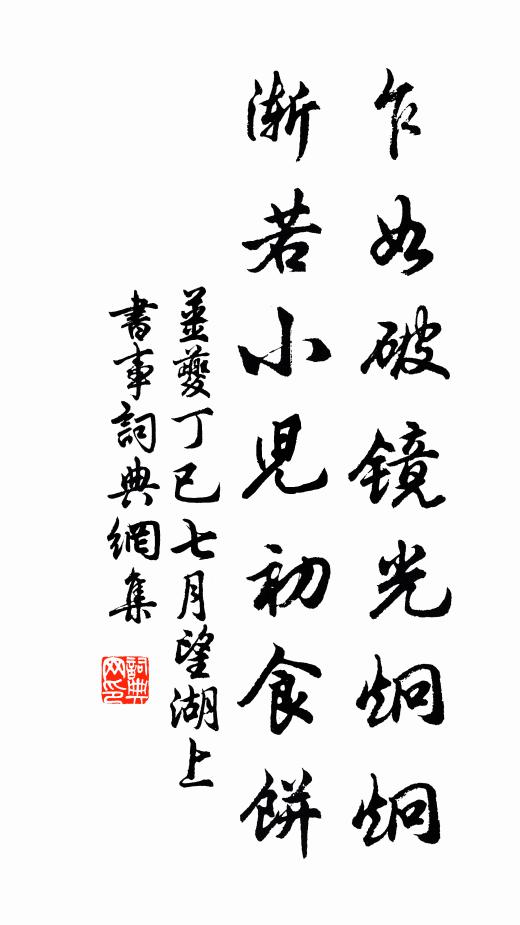 乍如破镜光炯炯
渐若小児初食餅
姜夔丁巳七月望湖上
書事詞典網集
詞典网印